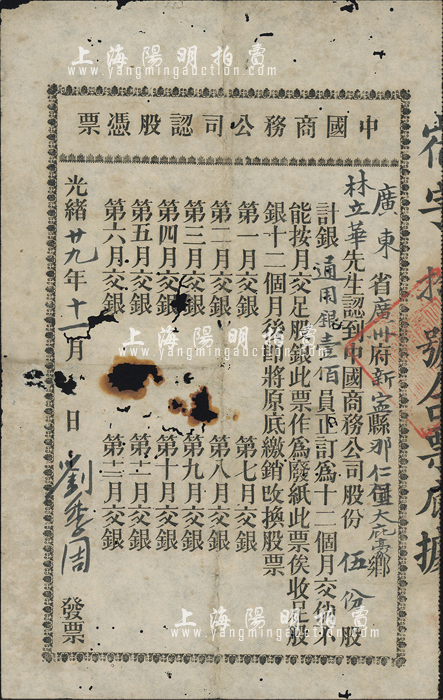 上海陽明拍賣
www.yangmingauction.com
中國商務公司認股憑票
廣東省廣州府新寧縣那仁
林立華先生認到中國商務公司股份伍份股
計銀通用銀壹佰員正訂為十二個月交他不
能按月交足股銀此票作為廢紙此票俟收足股
銀十二個月後即將原底繳銷改換股票
第一月交銀 第七月交銀
第二月交銀 第八月交銀
第三月交銀 第九月交銀
第四月交銀 第十月交銀
第五月交銀 第十一月交銀
第六月交銀 第十二月交銀
光緒廿九年十一月 日 發票
號合票底據
上海陽明拍賣
www.yangmingauction.com
上海陽明拍賣
www.yangmingauction.com